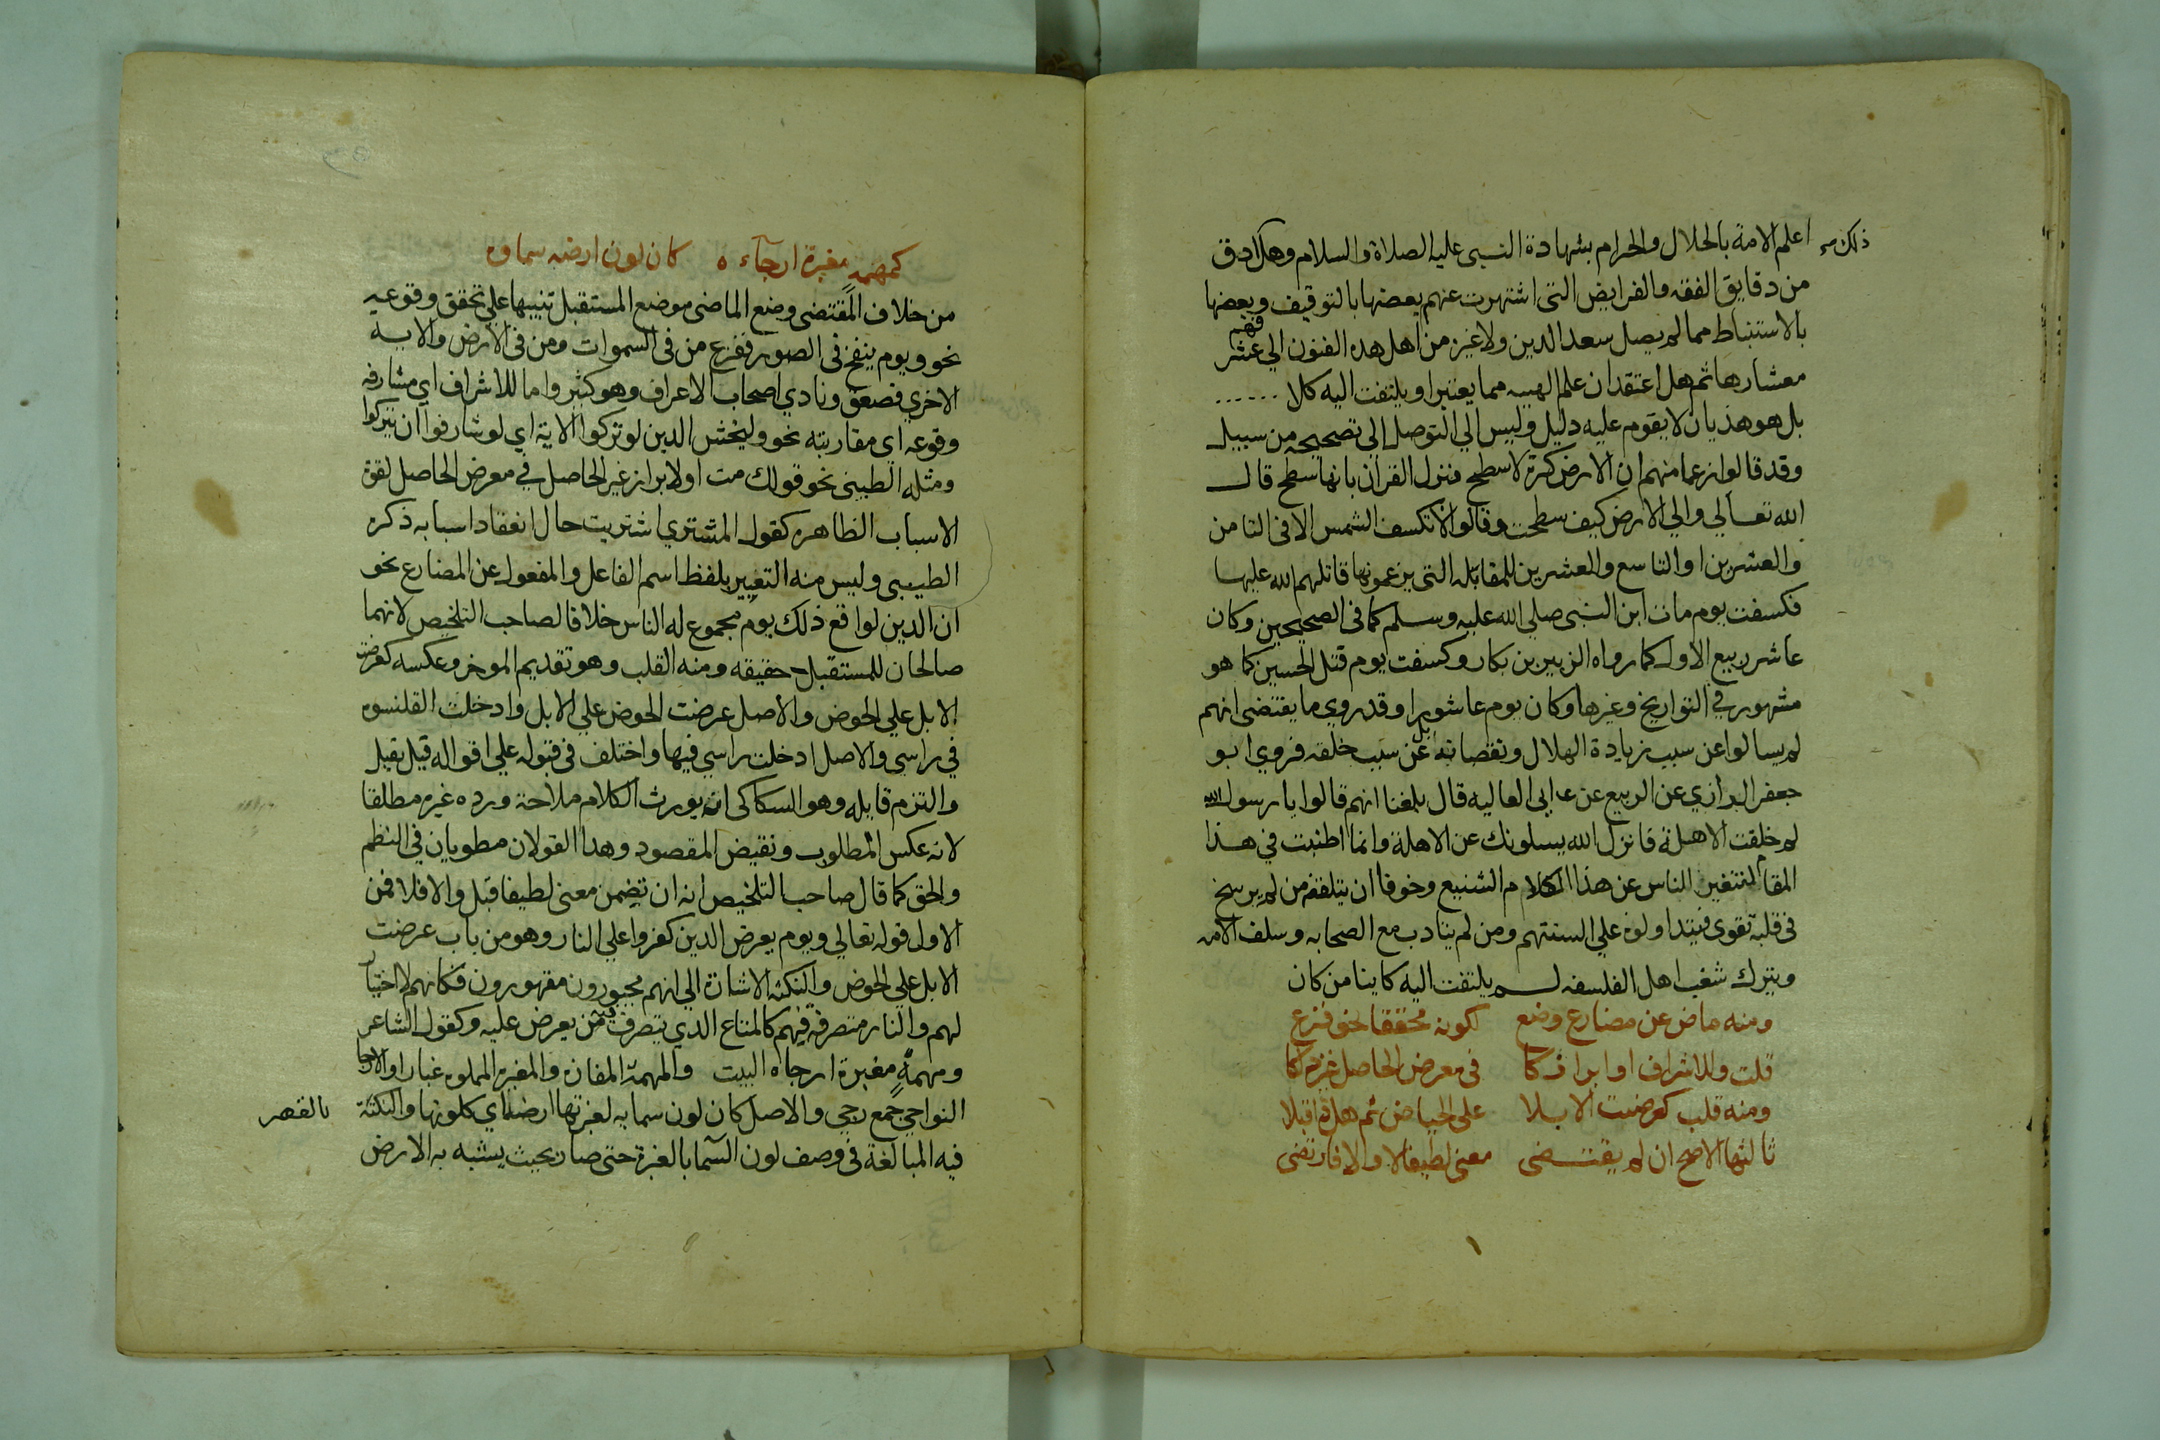 ذلك
اعلم الامة بالحلال والحرام بشهادة النبي عليه الصلاة والسلام وهل ادق
من دقايق الفقه والفرايض التي اشتهرت عنهم بعضها بالتوقيف وبعضها
بالاستنباط مما لم يصل سعد الدين ولا غيره من اهل هذه الفنون الي فهم عشر
معشارها ثم هل اعتقد ان علم الهيه مما يعتبر او يلتفت اليه كلا
بل هو هذيان لا يقوم عليه دليل وليس الي التوصل الي تصحيحه من سبيل
وقد قالوا زعما منهم ان الارض كرة لا سطح فنزل القران بانها سطح قال
الله تعالي والي الارض كيف سطحت وقالوا لا تكسف الشمس الا في الثامن
والعشرين او التاسع والعشرين للمقابله التي يزعمونها قاتلهم الله عليها
فكسفت يوم مات ابن النبي صلي الله عليه وسلم كما في الصحيحين وكان
عاشر ربيع الاول كما رواه الزبير بن بكار وكسفت يوم قتل الحسين كما هو
مشهور في التواريخ وغيرها وكان يوم عاشورا وقد روي ما يقتضي انهم
لم يسالوا عن سبب زيادة الهلال ونقصانه بل عن سبب خلقه فروي ابو
جعفر الرازي عن الربيع عن ابي العاليه قال بلغنا انهم قالوا يا رسول الله
لم خلقت الاهلة فانزل الله يسلونك عن الاهلة وانما اطنبت في هذا
المقام لتنفير الناس عن هذا الكلام الشنيع وخوفا ان يتلقفه من لم يرسخ
في قلبه تقوى فيتداولونه علي السنتهم ومن لم يتادب مع الصحابه وسلف الامه
ويترك شغب اهل الفلسفه لم يلتفت اليه كاينا من كان
ومنه ماض عن مضارع وضع لكونه محققا نحو فزع
قلت وللاشراف او ابراز كا في معرض الحاصل غيره لكا
ومنه قلب كعرضت الابلا علي الحياض ثم هل ذا قبلا
ثالثها الاصح ان لم يقتضي معنى لطيفا لا والا فارتضي
كمهمه مغبرة ارجاءه كان لون ارضه سماوه
من خلاف المقتضى وضع الماضي موضع المستقبل تنبيها علي تحقق وقوعه
نحو ويوم ينفخ في الصور ففزع من في السموات ومن في الارض والايه
الاخري فصعق ونادي اصحاب الاعراف وهو كثير واما للاشراف اي مشارفه
وقوعه اي مقاربته نحو وليخش الذين لو تركوا الاية اي لو شارفوا ان يتركوا
ومثله الطيبي نحو قولك مت او لابراز غير الحاصل في معرض الحاصل لقوة
الاسباب الظاهره كقول المشتري اشتريت حال انعقاد اسبابه ذكره
الطيبي وليس منه التعبير بلفظ اسم الفاعل والمفعول عن المضارع نحو
ان الدين لواقع ذلك يوم مجموع له الناس خلافا لصاحب التلخيص لانهما
صالحان للمستقبل حقيقه ومنه القلب وهو تقديم الموخر وعكسه كعرضت
الابل علي الحوض والاصل عرضت الحوض علي الابل وادخلت القلنسوه
في راسي والاصل ادخلت راسي فيها واختلف في قبوله علي اقوال قيل يقبل
والتزم قايله وهو السكاكي انه يورث الكلام ملاحة ورده غيره مطلقا
لانه عكس المطلوب ونقيض المقصود وهذا القولان مطويان في النظم
والحق كما قال صاحب التلخيص انه ان تضمن معنى لطيفا قبل والا فلا فمن
الاول قوله تعالي ويوم يعرض الذين كفروا علي النار وهو من باب عرضت
الابل علي الحوض والنكته الاشارة الي انهم مجبورون مقهورون فكانهم لا اختيار
لهم والنار متصرفة فيهم كالمتاع الذي يتصرف فيه من يعرض عليه وكقول الشاعر
ومهمه مغبرة ارجاه البيت والمهمة المفازه والمغبره المملوه غبارا والارجا
النواحي جمع رجي والاصل كان لون سمايه لغبرتها ارضه اي كلونها والنكتة
بالقصر
فيه المبالغة في وصف لون السما بالغبرة حتى صار بحيث يشبه به الارض